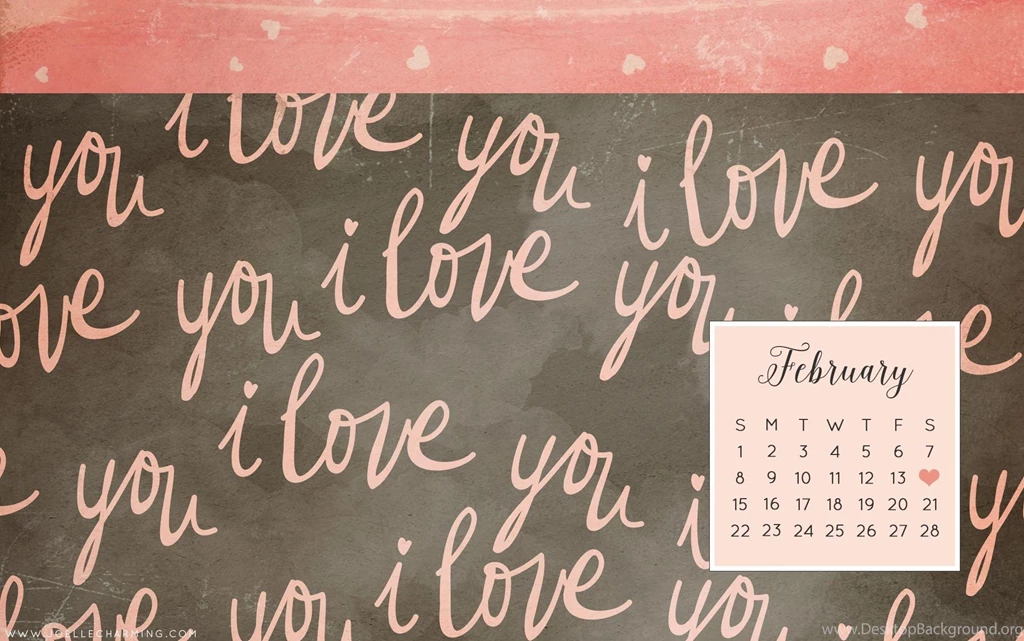 i love you
you i love you
love you i love you i love
i love you
you i
i love you
love you i love you
February
S M T W T F S
1 2 3 4 5 6 7
8 9 10 11 12 13
15 16 17 18 19 20 21
22 23 24 25 26 27 28
WWW.JOELLECHARMING.COM
www.DesktopBackground.org